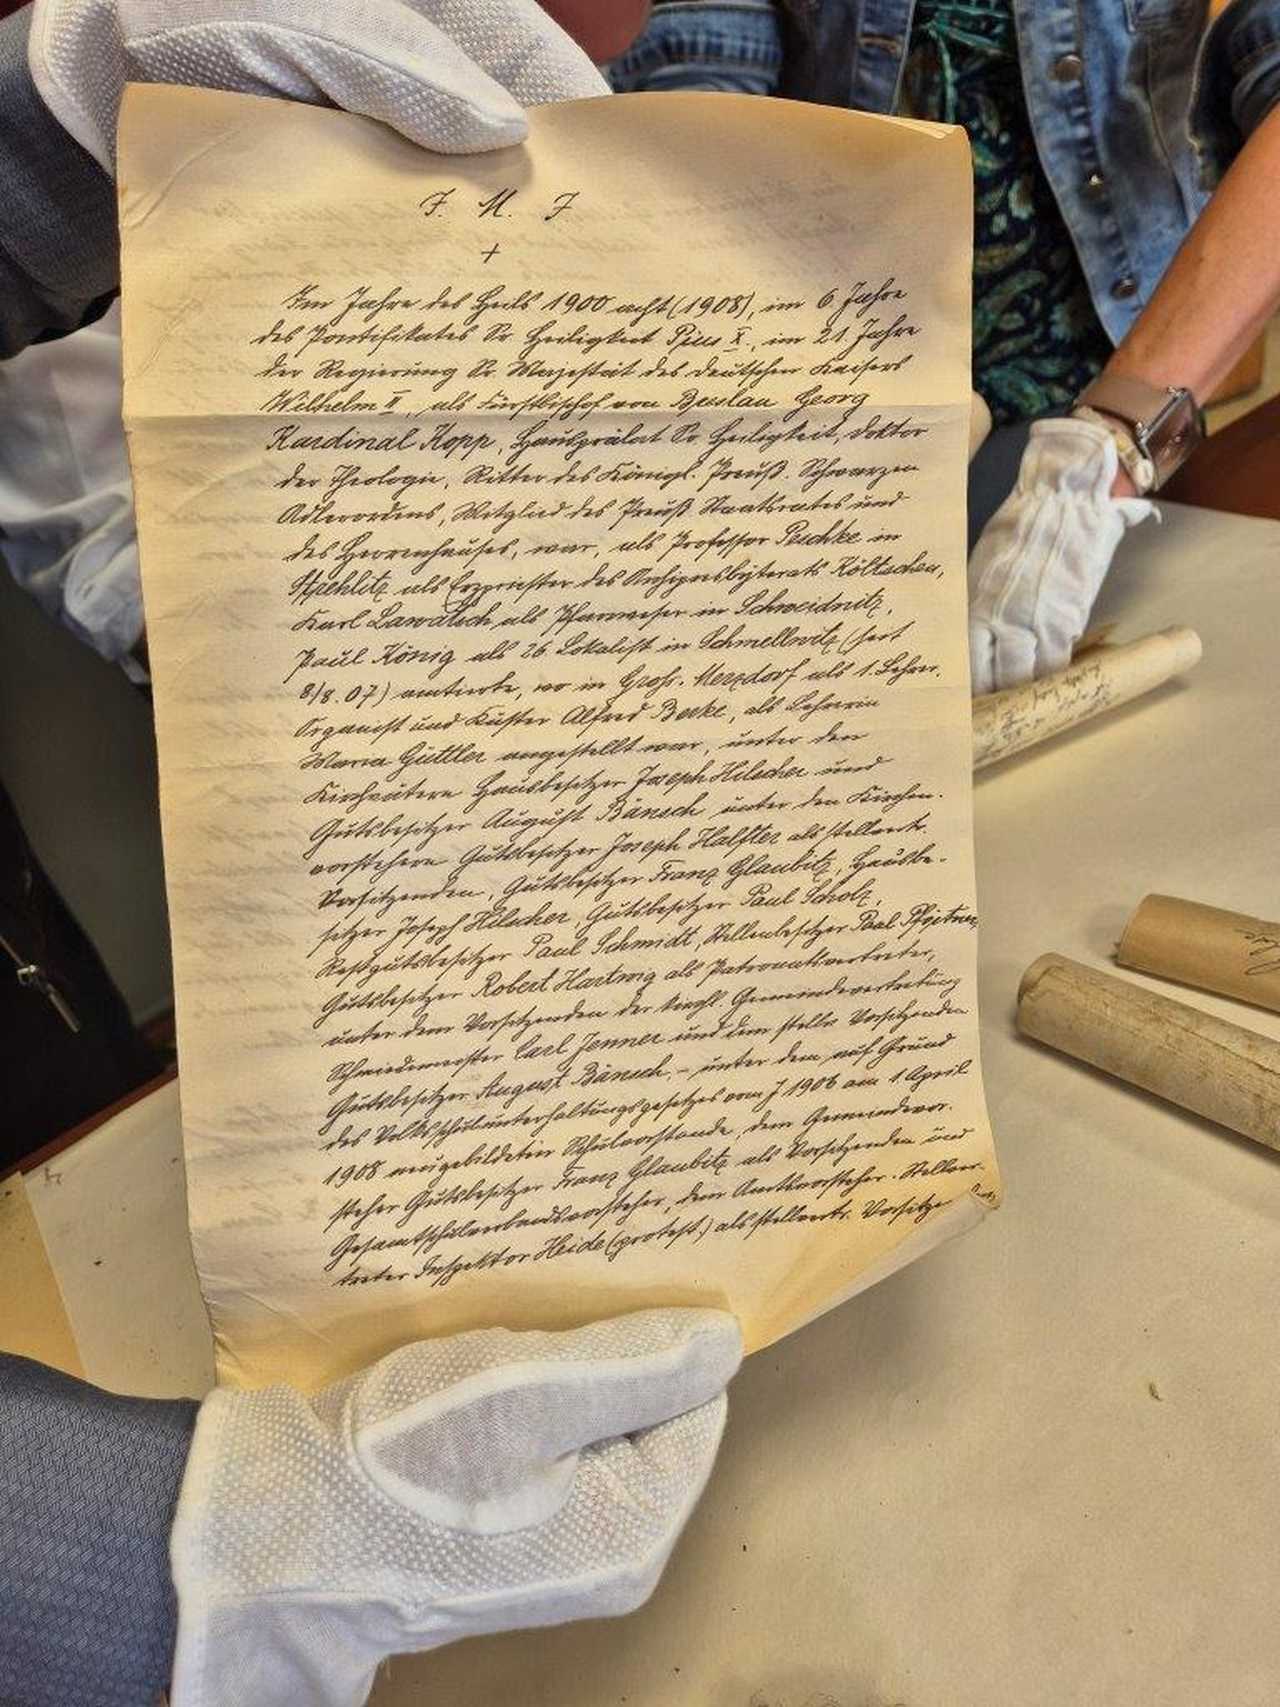 J. M. J
+
Im Jahre des Heils 1900 acht (1908), im 6 Jahre
des Pontifikates Sr. Heiligkeit Pius X., im 21. Jahre
der Regierung Sr. Majestät des deutschen Kaisers
Wilhelm II, als Fürstbischof von Breslau Georg
Kardinal Kopp, Hausprälat Sr. Heiligkeit, Doktor
der Theologie, Ritter des Königl. Preuß. Schwarzen
Adlerordens, Mitglied des Preuß Staatsrates und
des Herrenhauses, war, als Professor Peschke in
Strehlitz als Erzpriester des Archipresbyterats Költschen,
Karl Lawatsch als Pfarrweser in Schweidnitz,
Paul König als 26. Lokalist in Schmellwitz (seit
8/8. 07) amtierte, wo in Groß-Merzdorf als 1. Lehrer.
Organist und Küster Alfred Berke, als Lehrerin
Maria Güttler angestellt war, unter den
Kirchvätern Hausbesitzer Joseph Hilscher und
Gutsbesitzer August Bänsch unter den Kirchen-
vorstehern Gutsbesitzer Joseph Halfter als stellvertr.
Vorsitzenden, Gutsbesitzer Franz Glaubitz, Hausbe-
sitzer Joseph Hilscher, Gutsbesitzer Paul Scholz,
Restgutsbesitzer Paul Schmidt, Stellenbesitzer Paul Pförtner,
Gutsbesitzer Robert Hartwig als Patronatsvertreter,
unter dem Vorsitzenden der kirchl. Gemeindevertretung
Schmiedemeister Carl Jenner und dem stellv. Vorsitzenden
Gutsbesitzer August Bänsch, - unter dem auf Grund
des Volksschulunterhaltungsgesetzes vom J. 1906 am 1 April
1908 neugebildeten Schulvorstande, dem Gemeindevor-
steher Gutsbesitzer Franz Glaubitz als Vorsitzenden und
Gesamtschulverbandsvorsteher, dem Amtsvorsteher-Stellver-
treter Inspektor Heide (protest.) als stellvertr.